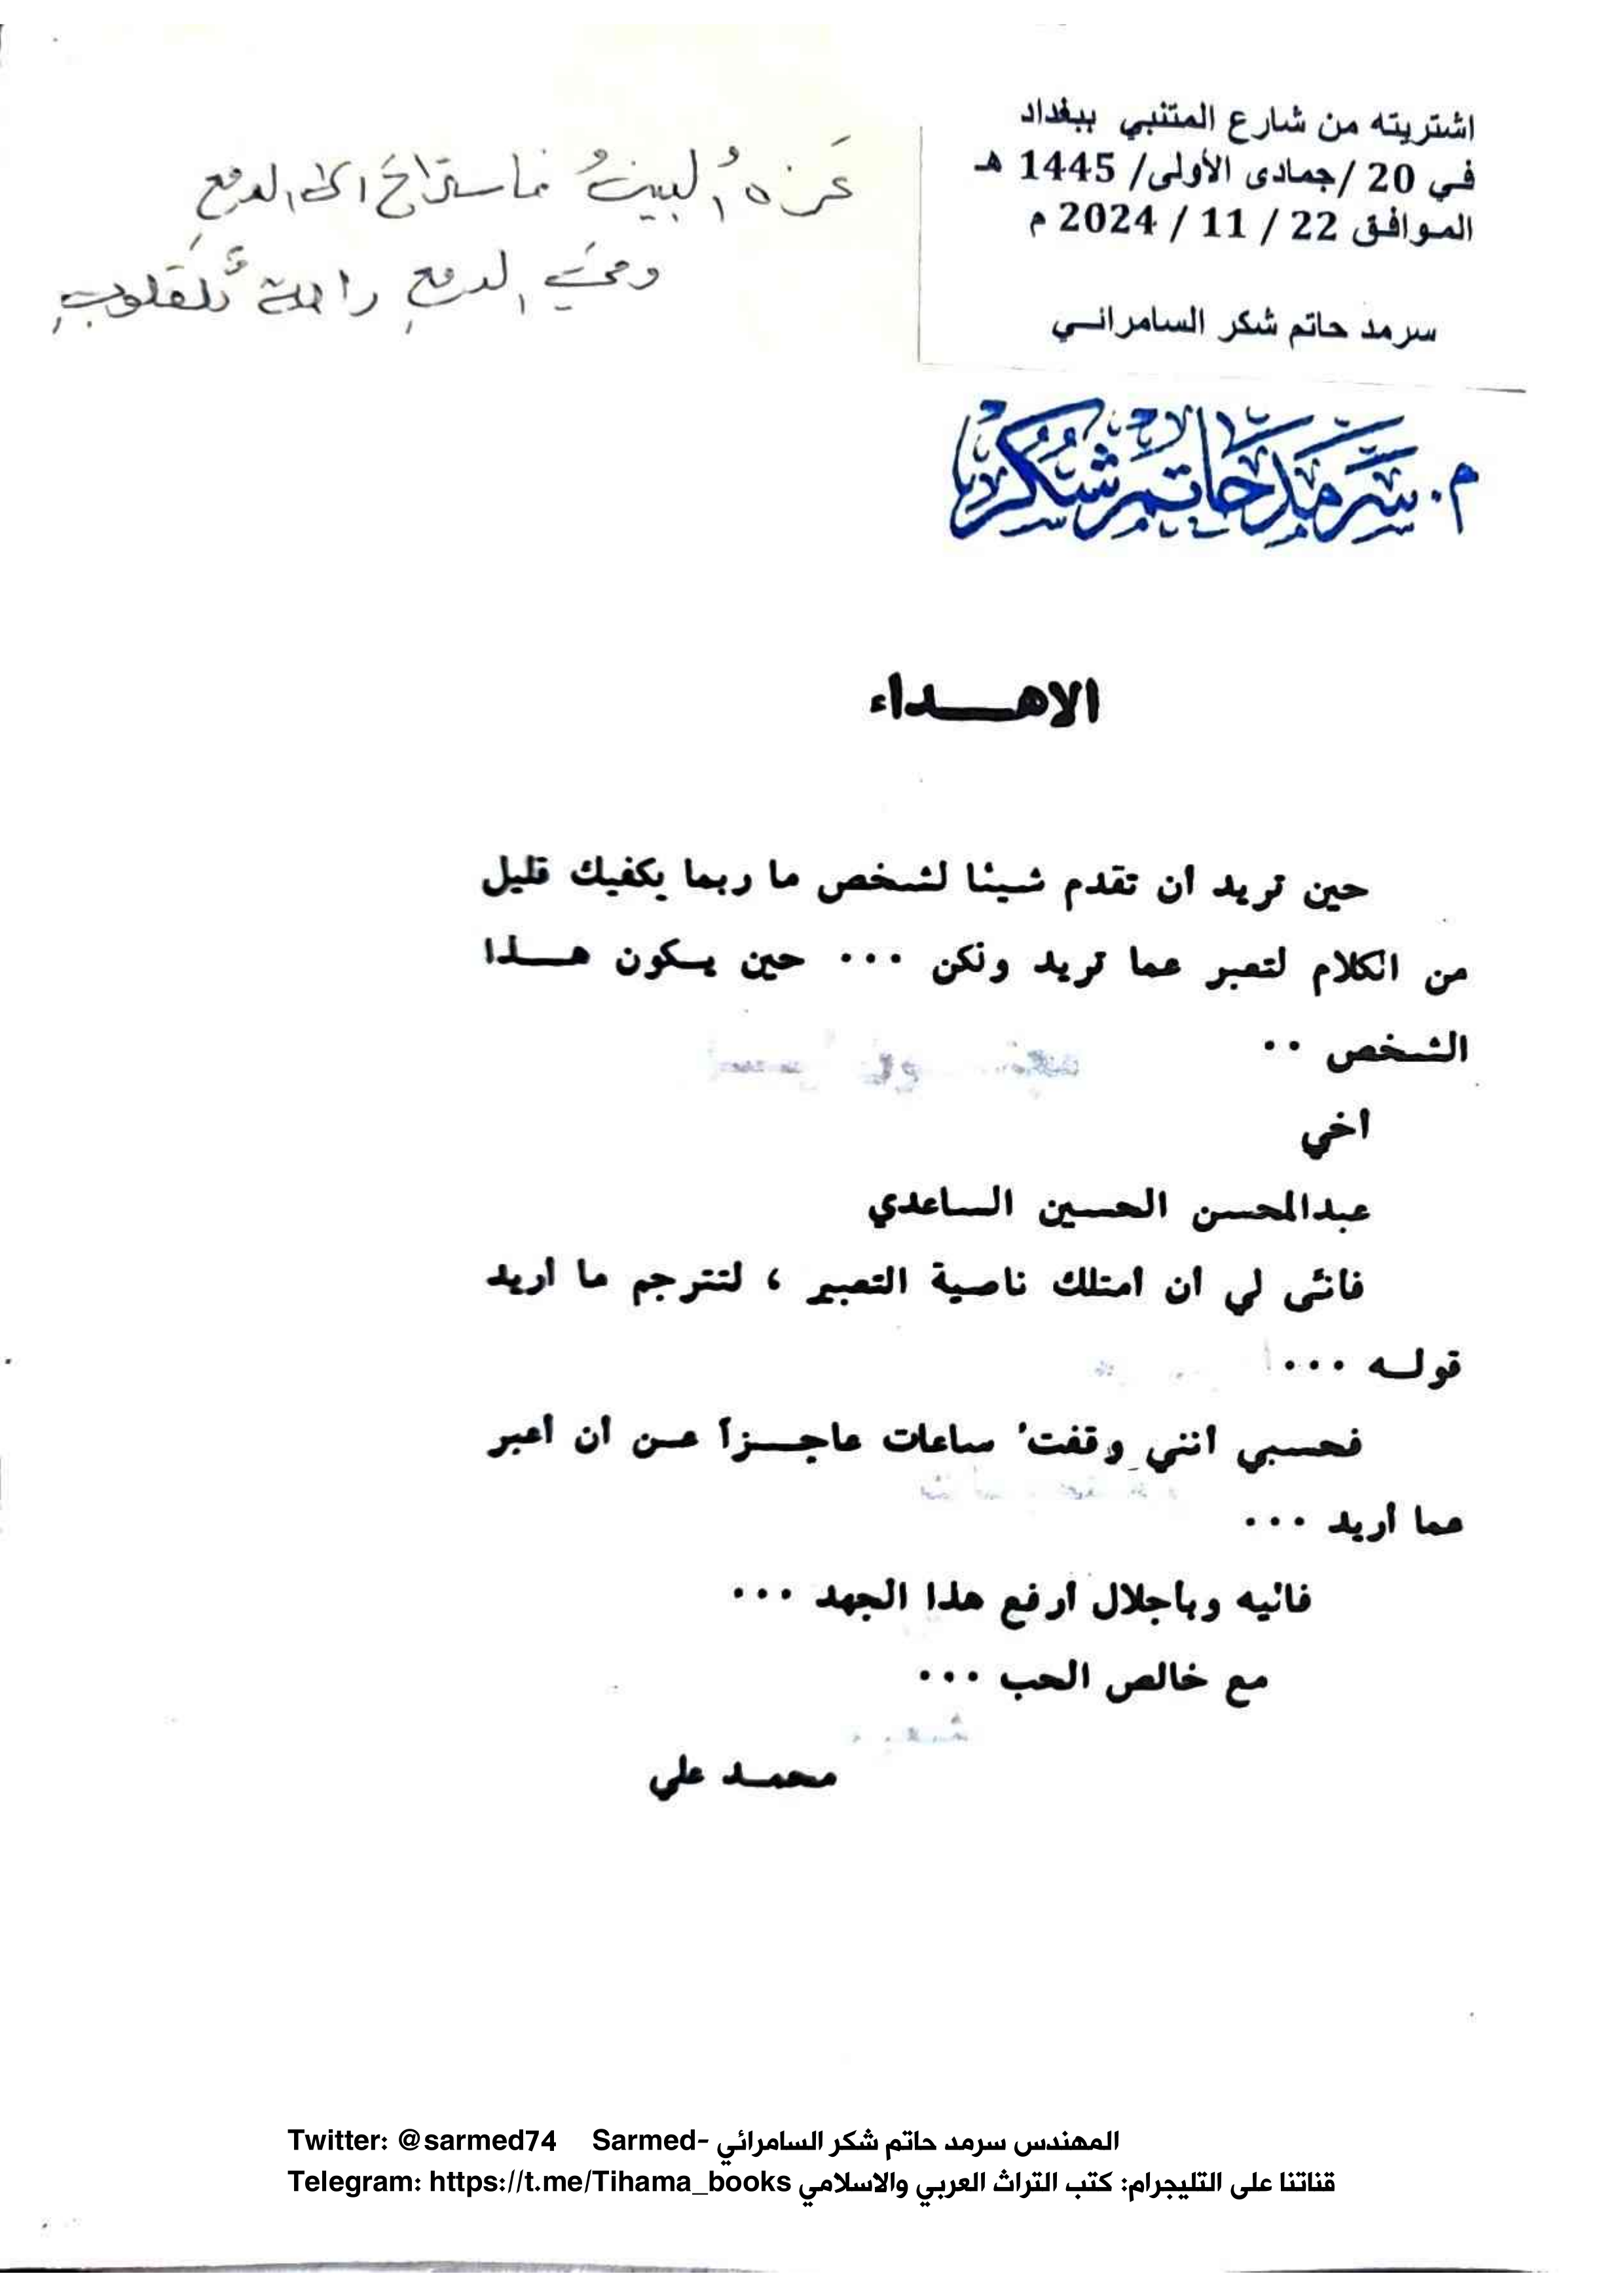 اشتريته من شارع المتنبي ببغداد
في 20 /جمادى الأولى/ 1445 هـ
الموافق 22 / 11 / 2024 م
سرمد حاتم شكر السامرائي
البينُ فاستراحَ الى الدمعِ
وفي الدمعِ راحةٌ للقلوبِ
م. سرمد حاتم شكر
الاهـــداء
حين تريد ان تقدم شيئا لشخص ما ربما يكفيك قليل
من الكلام لتعبر عما تريد ولكن ... حين يكون هــذا
الشخص ..
اخي
عبدالمحسن الحسين الساعدي
فانى لي ان امتلك ناصية التعبير ، لتترجم ما اريد
قوله ...
فحسبي انني وقفت ساعات عاجــزاً عــن ان اعبر
عما اريد ...
فاليه وباجلال ارفع هذا الجهد ...
مع خالص الحب ...
محمــد علي
Twitter: @sarmed74 Sarmed- المهندس سرمد حاتم شكر السامرائي
Telegram: https://t.me/Tihama_books قناتنا على التليجرام: كتب التراث العربي والاسلامي